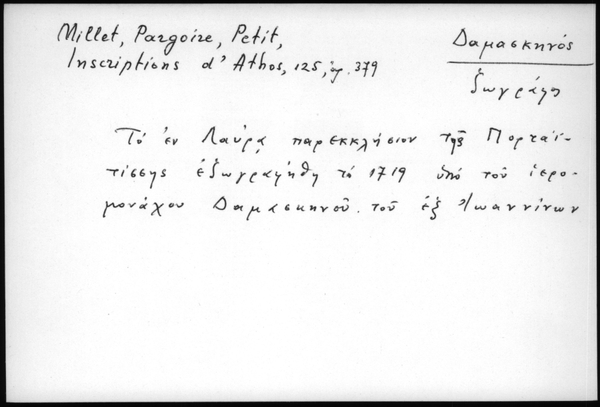 Millet, Pargoire, Petit,
Inscriptions d'Athos, 125, ἀρ. 379
Δαμασκηνός
ζωγράφος
Τό ἐν Λαύρᾳ παρεκκλήσιον τῆς Πορταΐ-
τίσσης ἐζωγραφήθη τό 1719 ὑπό τοῦ ἱερο-
μονάχου Δαμασκηνοῦ τοῦ ἐξ Ἰωαννίνων